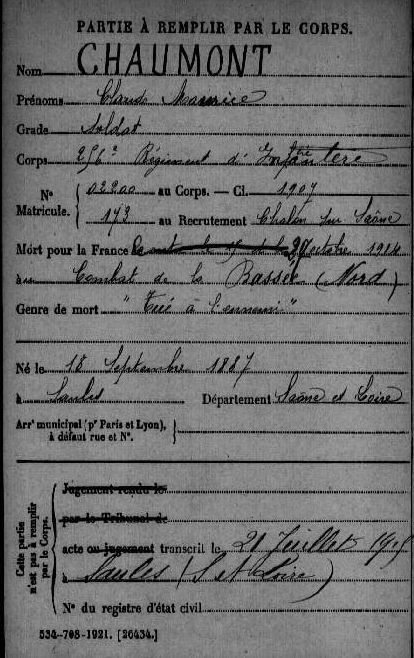 PARTIE À REMPLIR PAR LE CORPS.
Nom CHAUMONT
Prénoms Claude Maurice
Grade Soldat
Corps 256e Régiment d'Infanterie
N° Matricule. { 02200 au Corps. — Cl. 1907
173 au Recrutement Chalon sur Saône
Mort pour la France le octobre 1914
au Combat de la Bassée (Nord)
Genre de mort "Tué à l'ennemi"
Né le 18 Septembre 1887
à Saules Département Saône et Loire
Arrt municipal (pr Paris et Lyon), à défaut rue et N°. }
Cette partie n'est pas à remplir par le Corps.
Jugement rendu le
par le Tribunal de
acte ou jugement transcrit le 21 Juillet 1915
à Saules (S et Loire)
N° du registre d'état civil
534-708-1921. [26434.]